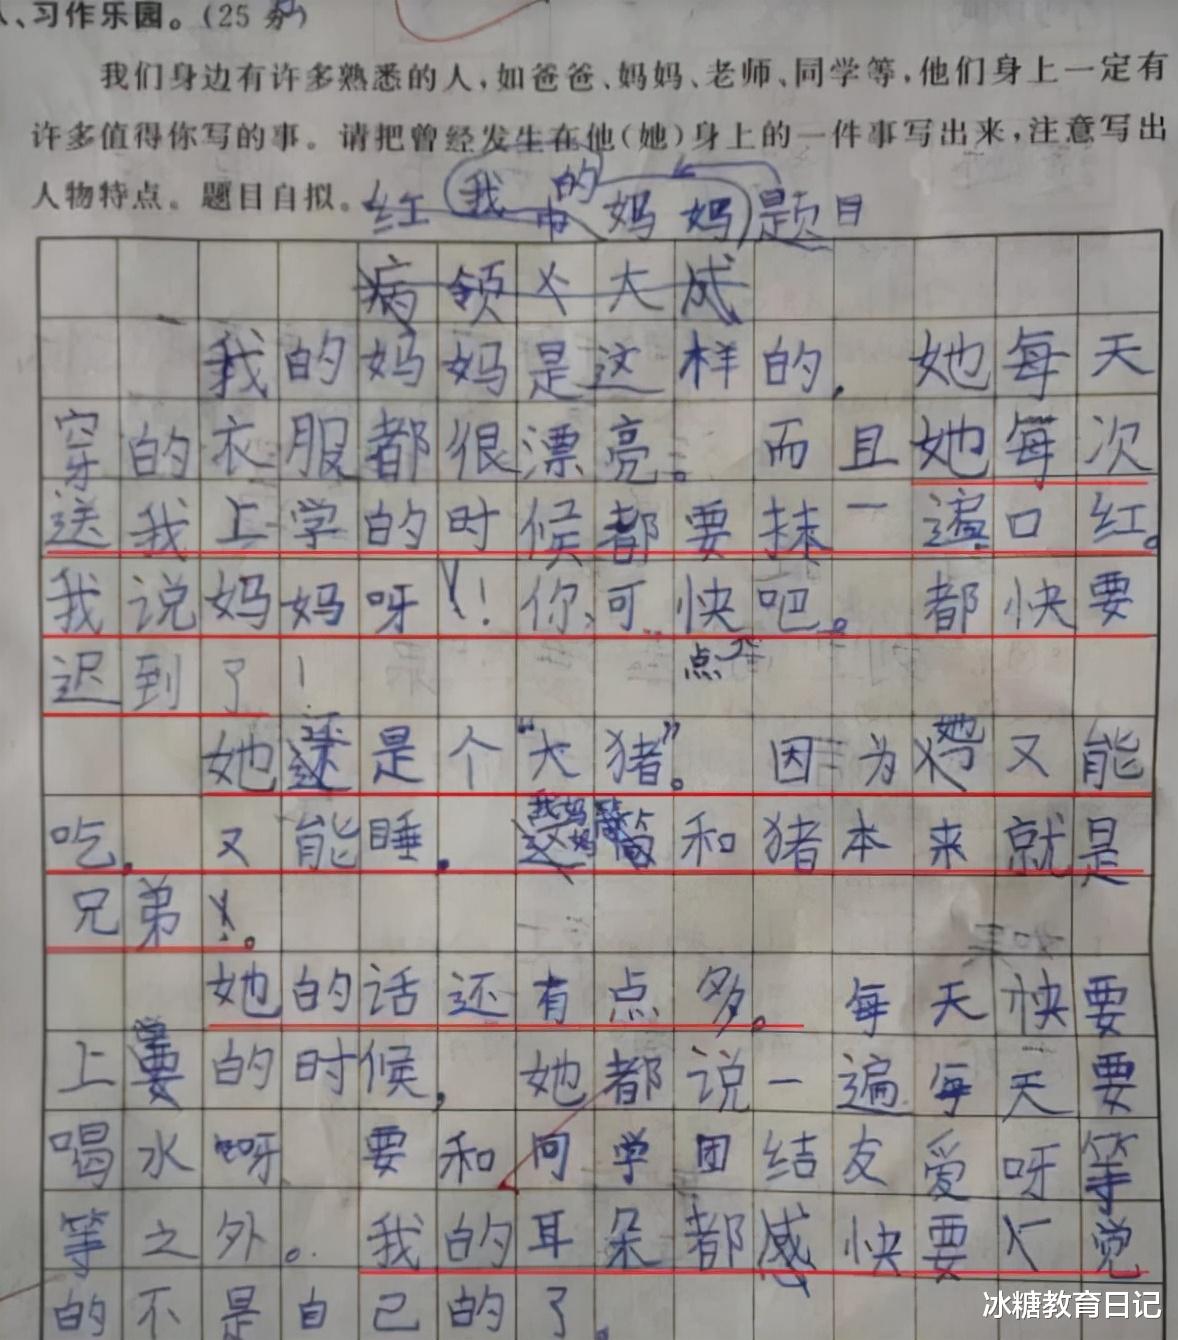 、习作乐园。(25分)
我们身边有许多熟悉的人,如爸爸、妈妈、老师、同学等,他们身上一定有
许多值得你写的事。请把曾经发生在他(她)身上的一件事写出来,注意写出
人物特点。题目自拟。
我的妈妈 题目
我的妈妈是这样的,她每天
穿的衣服都很漂亮。而且她每次
送我上学的时候都要抹一遍口红。
我说妈妈呀!你可快点吧。都快要
迟到了!
她还是个“大猪”。因为她又能
吃,又能睡.我妈妈和猪本来就是
兄弟。
她的话还有点多。每天快要
上学的时候,她都说一遍每天要
喝水呀 要和同学团结友爱呀等
等之外。我的耳朵都感快要觉
的不是自己的了。
冰糖教育日记